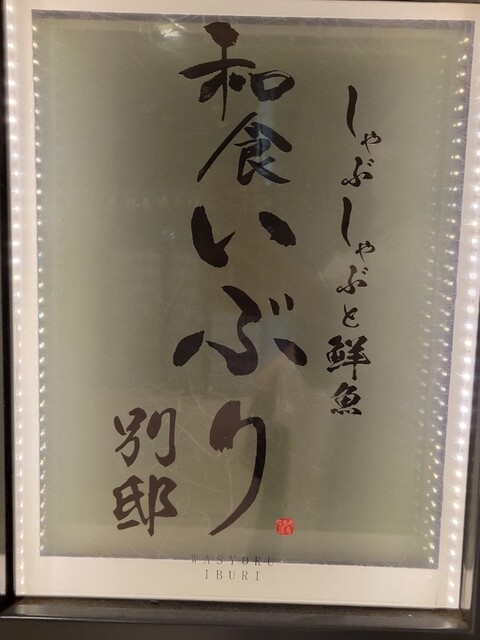 しゃぶしゃぶと鮮魚
和食いぶり
別邸
WASYOKU
IBURI